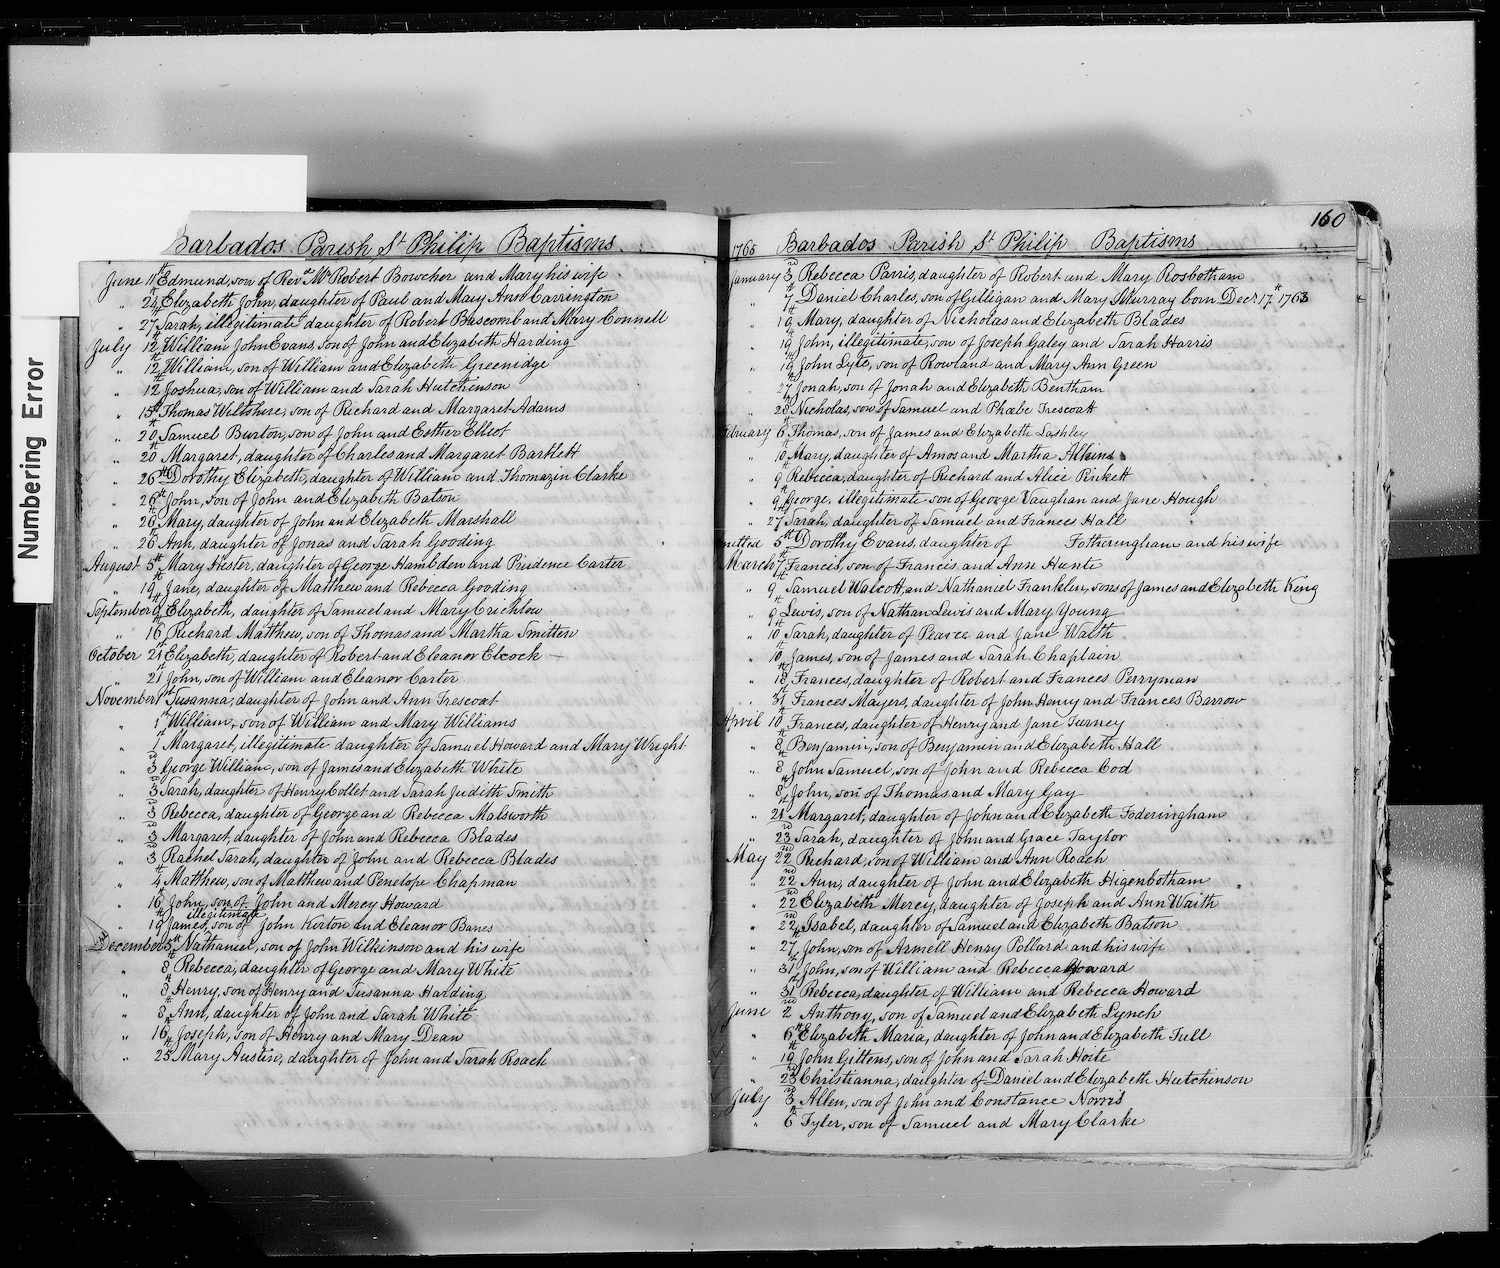 Numbering Error
Barbados Parish St Philip Baptisms
June 11th Edmund, son of Revd Mr Robert Bowcher and Mary his wife
" 24th Elizabeth John, daughter of Paul and Mary Ann Carrington
" 27th Sarah, illegitimate daughter of Robert Bascomb and Mary Connell
July 12th William John Evans, son of John and Elizabeth Harding
" 12th William, son of William and Elizabeth Greenidge
" 12th Joshua, son of William and Sarah Hutchinson
" 15th Thomas Wiltshire, son of Richard and Margaret Adams
" 20th Samuel Burton, son of John and Esther Elliot
" 20th Margaret, daughter of Charles and Margaret Bartlett
" 26th Dorothy Elizabeth, daughter of William and Thomazin Clarke
" 26th John, son of John and Elizabeth Batson
" 26th Mary, daughter of John and Elizabeth Marshall
" 26th Ann, daughter of Jonas and Sarah Gooding
August 5th Mary Hester, daughter of George Hambden and Prudence Carter
" 19th Jane, daughter of Matthew and Rebecca Gooding
September 9th Elizabeth, daughter of Samuel and Mary Crichlow
" 16th Richard Matthew, son of Thomas and Martha Smitten
October 21st Elizabeth, daughter of Robert and Eleanor Elcock
" 21st John, son of William and Eleanor Carter
November 1st Susanna, daughter of John and Ann Trescoat
" 1st William, son of William and Mary Williams
" 1st Margaret, illegitimate daughter of Samuel Howard and Mary Wright
" 3rd George William, son of James and Elizabeth White
" 3rd Sarah, daughter of Henry Collet and Sarah Judith Smith
" 3rd Rebecca, daughter of George and Rebecca Molsworth
" 3rd Margaret, daughter of John and Rebecca Blades
" 3rd Rachel Sarah, daughter of John and Rebecca Blades
" 4th Matthew, son of Matthew and Penelope Chapman
" 16th John, son of John and Mercy Howard
" 19th James, illegitimate son of John Kirton and Eleanor Banes
December 5th Nathaniel, son of John Wilkinson and his wife
" 8th Rebecca, daughter of George and Mary White
" 8th Henry, son of Henry and Susanna Harding
" 8th Ann, daughter of John and Sarah White
" 16th Joseph, son of Henry and Mary Dean
" 25th Mary Austin, daughter of John and Sarah Roach
160
1765 Barbados Parish St Philip Baptisms
January 3rd Rebecca Parris, daughter of Robert and Mary Rosbotham
" 7th Daniel Charles, son of Gilligan and Mary Murray born Decr 17th 1763
" 19th Mary, daughter of Nicholas and Elizabeth Blades
" 19th John, illegitimate, son of Joseph Galey and Sarah Harris
" 19th John Lyte, son of Rowland and Mary Ann Green
" 27th Jonah, son of Jonah and Elizabeth Bentham
" 28th Nicholas, son of Samuel and Phœbe Trescoatt
February 6th Thomas, son of James and Elizabeth Lashley
" 10th Mary, daughter of Amos and Martha
" 9th Rebecca, daughter of Richard and Alice Pinkett
" 9th George, illegitimate son of George Vaughan and Jane Hough
" 27th Sarah, daughter of Samuel and Frances Hall
mitted 5th Dorothy Evans, daughter of Fotheringham and his wife
March 7th Francis, son of Francis and Ann Hunte
" 9th Samuel Walcott, and Nathaniel Franklin, sons of James and Elizabeth King
" 9th Lewis, son of Nathan Lewis and Mary Young
" 10th Sarah, daughter of Pearce and Jane Walsh
" 10th James, son of James and Sarah Chaplain
" 18th Frances, daughter of Robert and Frances Perryman
" 31st Frances Mayers, daughter of John Henry and Frances Barrow
April 10th Frances, daughter of Henry and Jane Turney
" 8th Benjamin, son of Benjamin and Elizabeth Hall
" 8th John Samuel, son of John and Rebecca Cod
" 8th John, son of Thomas and Mary Gay
" 21st Margaret, daughter of John and Elizabeth Foderingham
" 23rd Sarah, daughter of John and Grace Taylor
May 22nd Richard, son of William and Ann Roach
" 22nd Ann, daughter of John and Elizabeth Higenbotham
" 22nd Elizabeth Mercy, daughter of Joseph and Ann Waith
" 22nd Isabel, daughter of Samuel and Elizabeth Batson
" 27th John, son of Armell Henry Pollard and his wife
" 31st John, son of William and Rebecca Howard
" 31st Rebecca, daughter of William and Rebecca Howard
June 2nd Anthony, son of Samuel and Elizabeth Lynch
" 6th Elizabeth Maria, daughter of John and Elizabeth Tull
" 19th John Gittens, son of John and Sarah Hoite
" 23rd Christianna, daughter of Daniel and Elizabeth Hutchinson
July 3rd Allen, son of John and Constance Norris
" 6th Tyler, son of Samuel and Mary Clarke